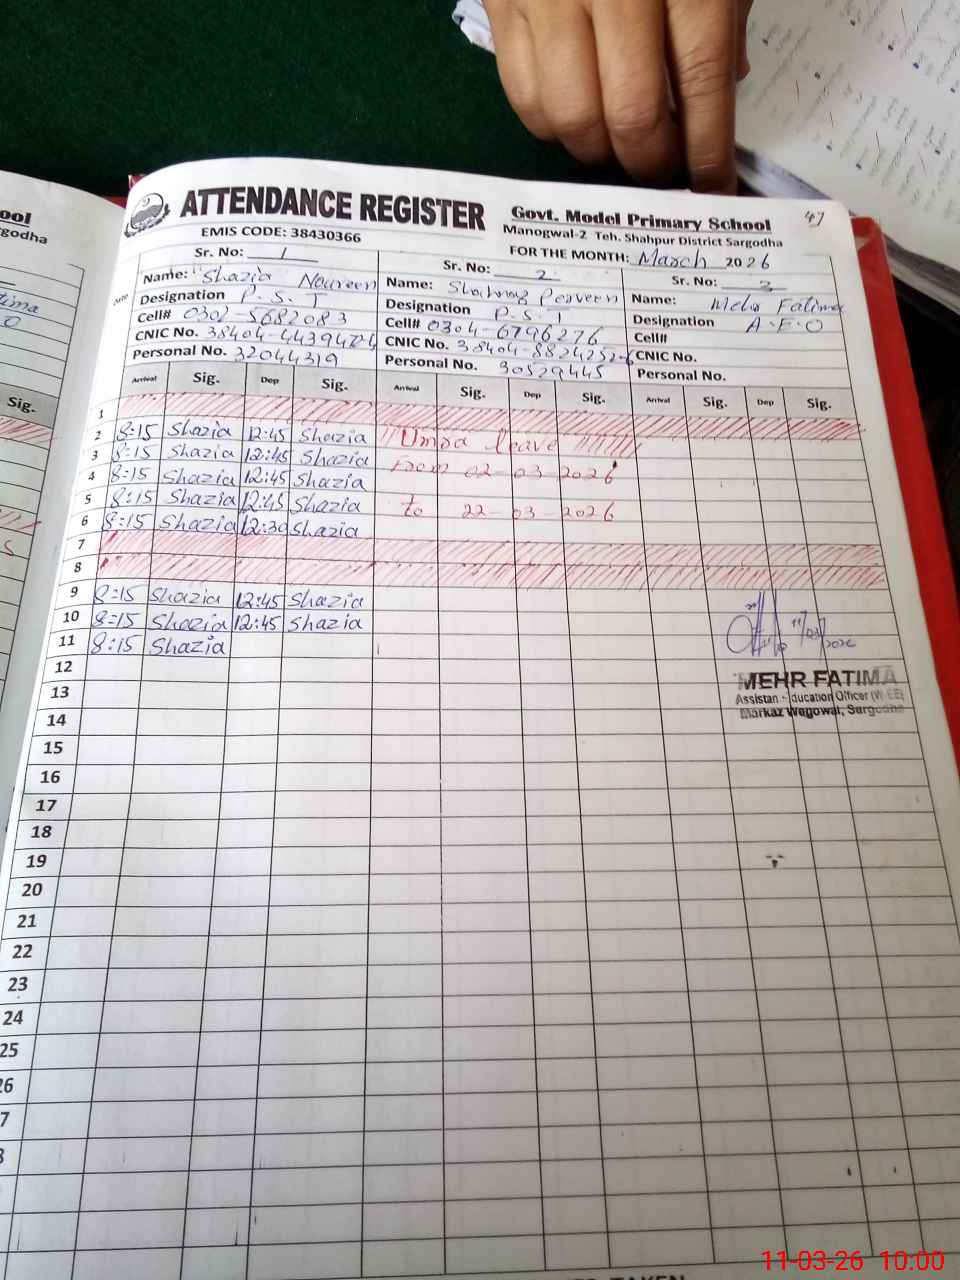 ool
rgodha
Sig.
ATTENDANCE REGISTER
EMIS CODE: 38430366
Govt. Model Primary School
47
Manogwal-2 Teh. Shahpur District Sargodha
FOR THE MONTH: March 2026
Sr. No: 1
Sr. No: 2
Sr. No: 3
Name: Shazia Noureen
Name: Perveen
Name: Fatima
Designation P.S.T
Designation P.S.T
Designation A.E.O
Cell# 0302-5682083
Cell# 0304-6796276
Cell#
CNIC No.
CNIC No.
CNIC No.
Personal No. 32044319
Personal No. 30529445
Personal No.
Arrival Sig. Dep Sig. Arrival Sig. Dep Sig. Arrival Sig. Dep Sig.
1
2 8:15 Shazia 12:45 Shazia Umra leave
3 8:15 Shazia 12:45 Shazia From 02-03-2026
4 8:15 Shazia 12:45 Shazia
5 8:15 Shazia 12:45 Shazia to 22-03-2026
6 8:15 Shazia 12:30 Shazia
7
8
9 8:15 Shazia 12:45 Shazia
10 8:15 Shazia 12:45 Shazia
11 8:15 Shazia
11/03/2026
12
MEHR FATIMA
13
Assistan ducation Officer (W-EE)
Markaz Wegowal, Sargodha
14
15
16
17
18
19
20
21
22
23
24
25
26
7
8
11-03-26 10:00